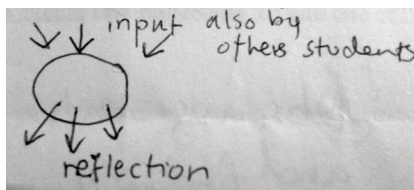 input also by
others students
reflection